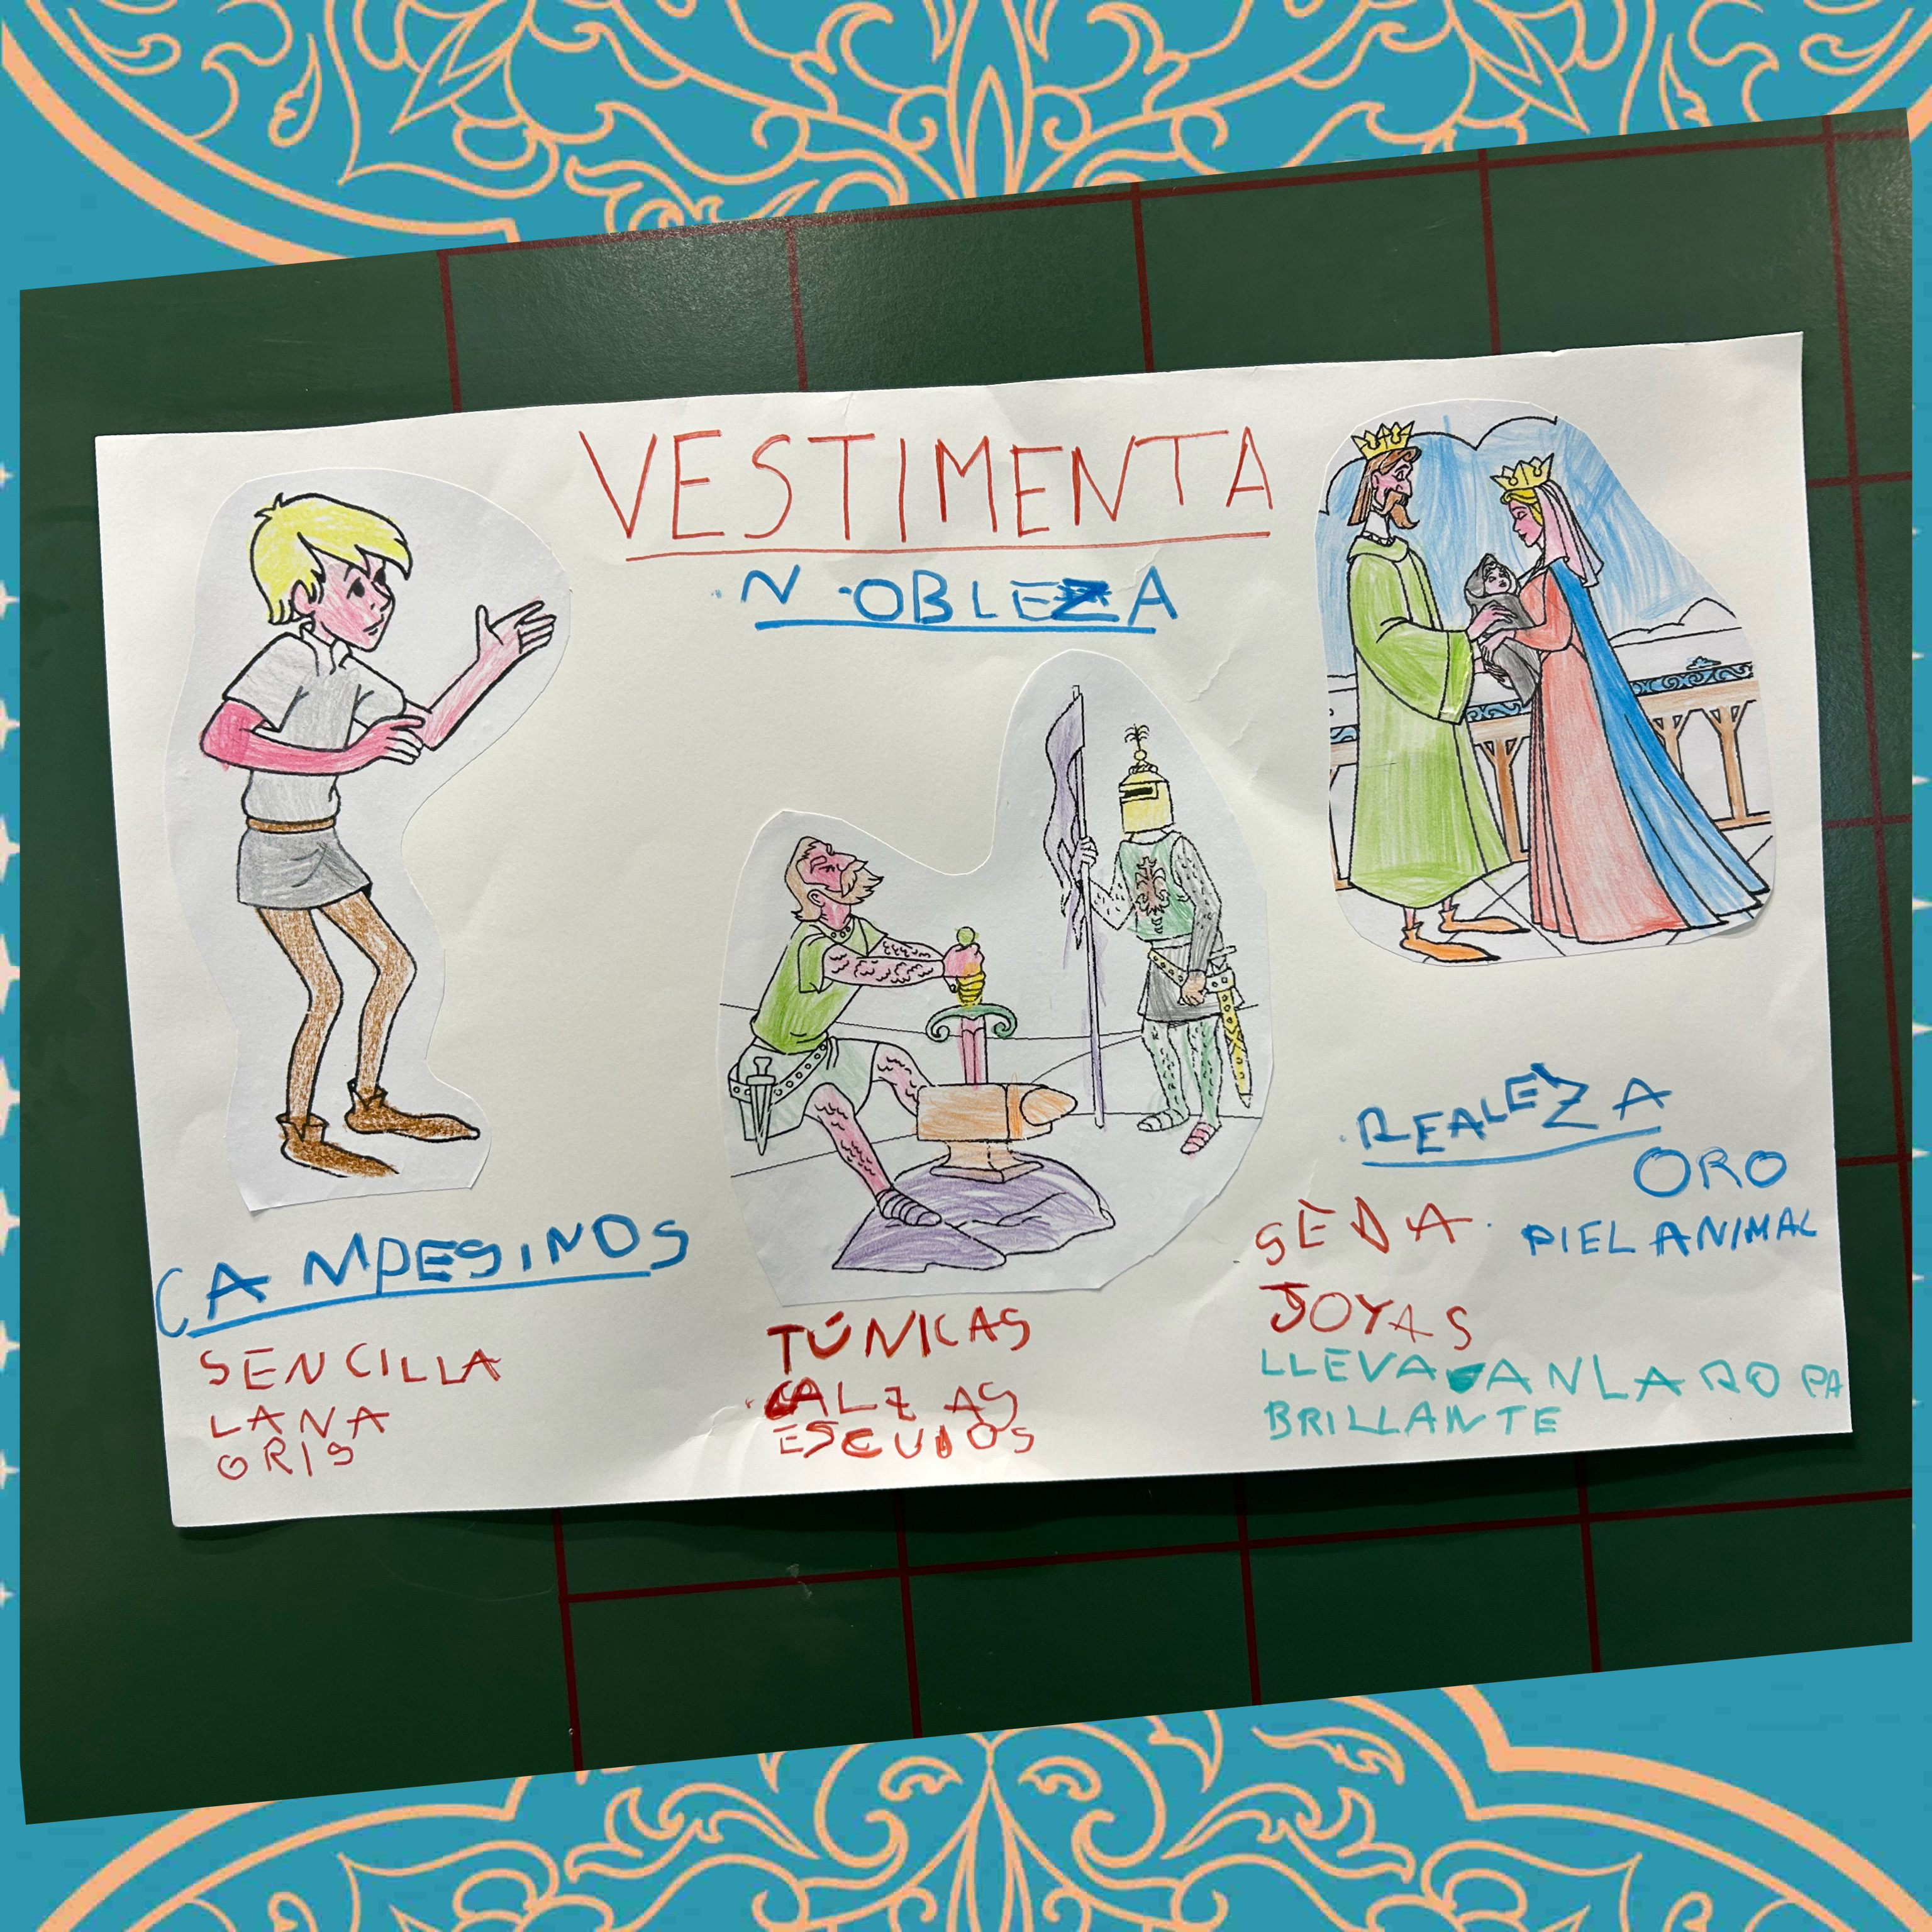 VESTIMENTA
NOBLEZA
CAMPESINOS
SENCILLA
LANA
GRIS
TÚNICAS
CALZAS
ESCUDOS
REALEZA
ORO
SEDA
PIEL ANIMAL
JOYAS
LLEVAVAN LA ROPA
BRILLANTE